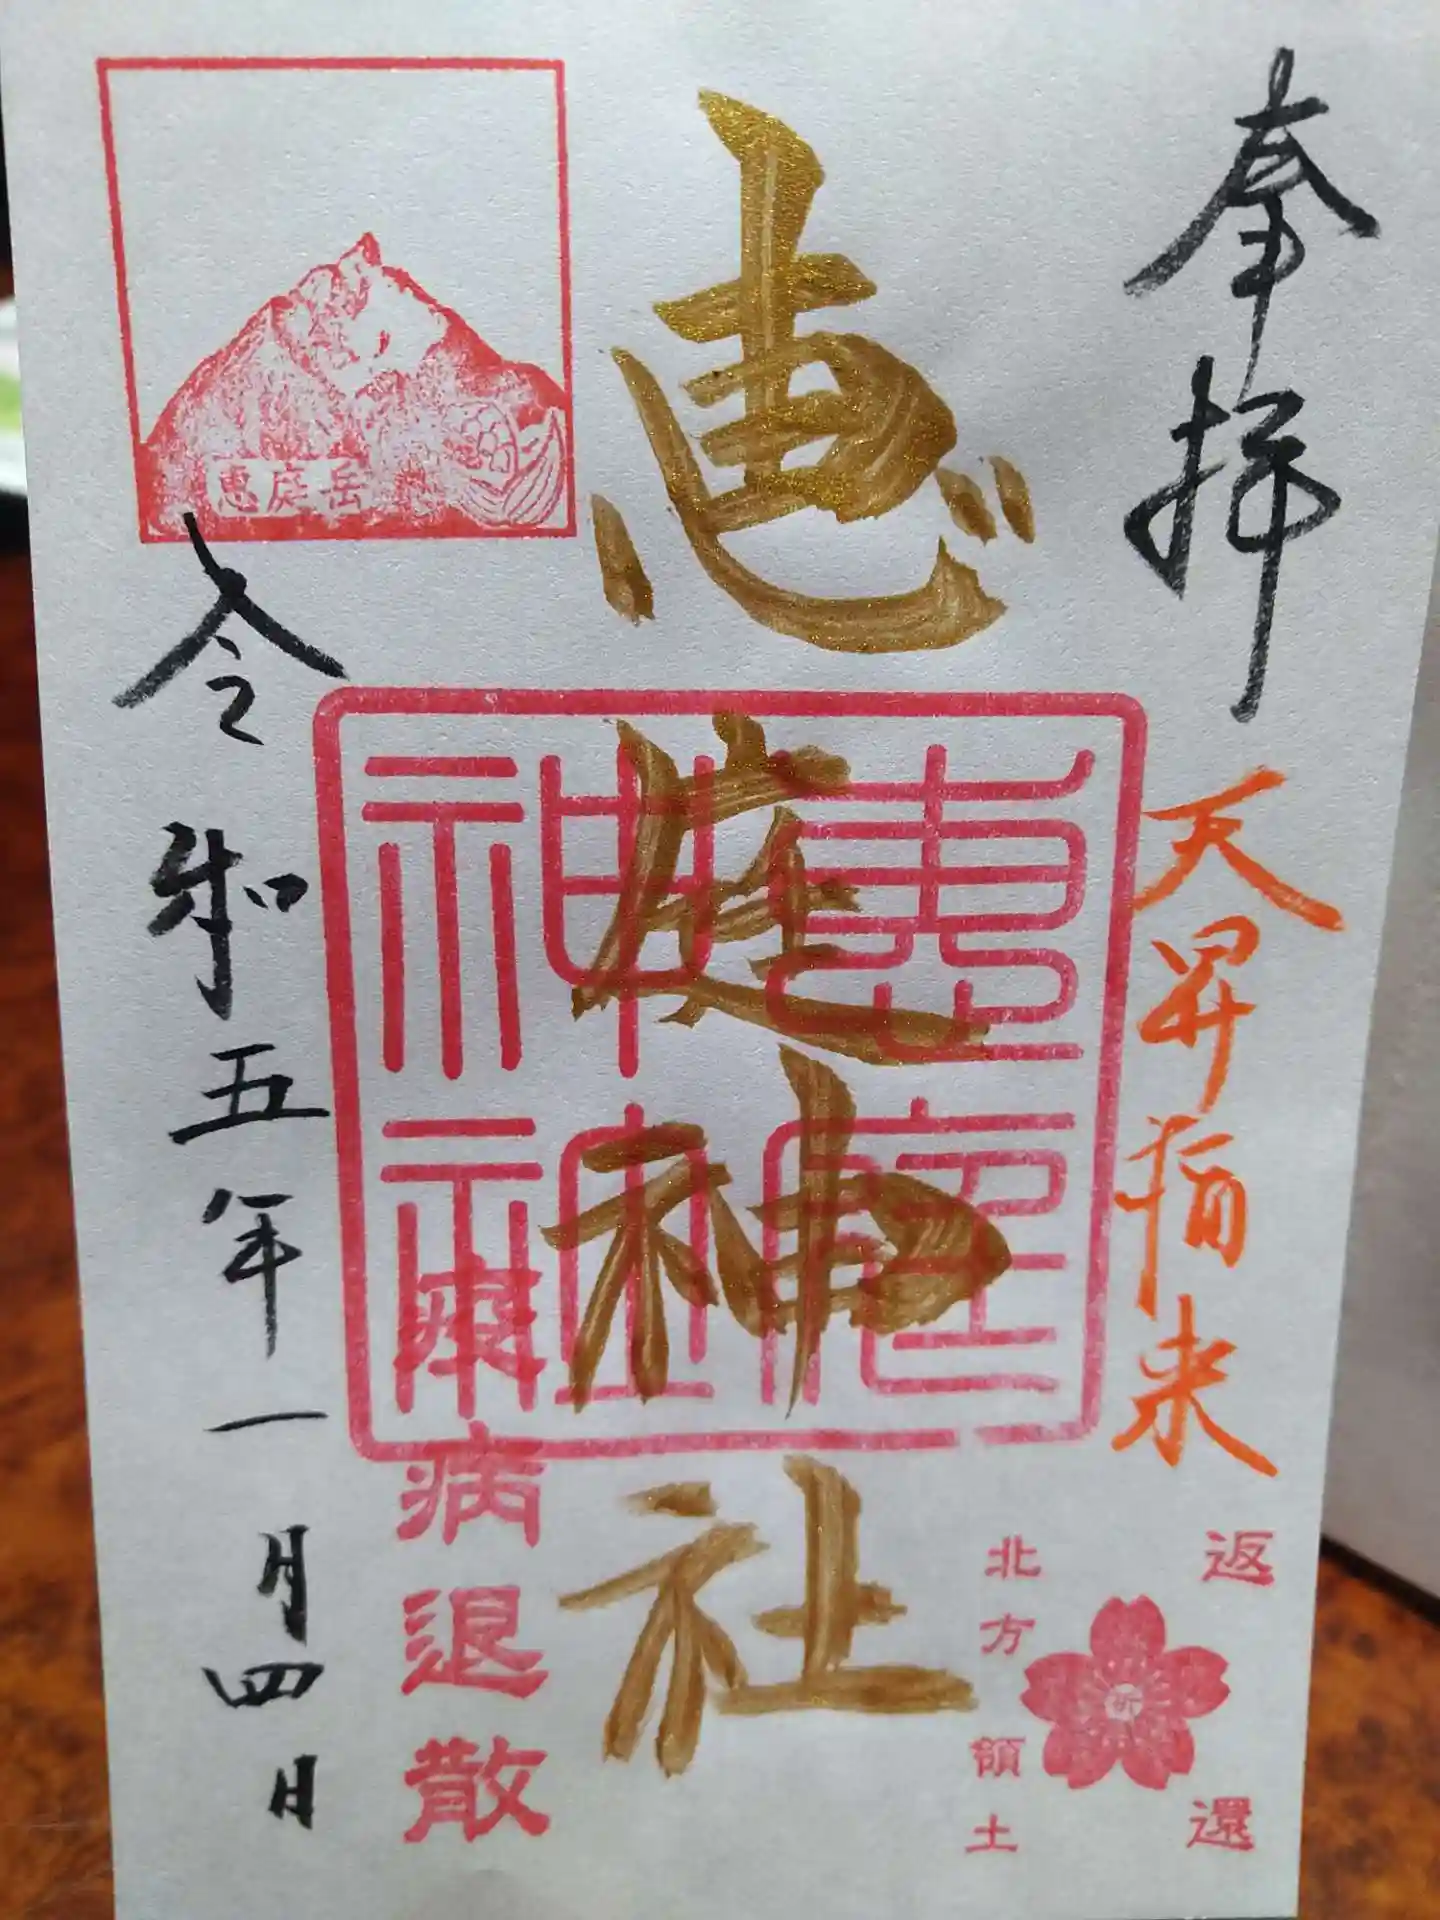 奉拝
天昇招来
返還
祈
北方領土
恵庭神社
惠庭
神社
疫病退散
恵庭岳
令和五年一月四日